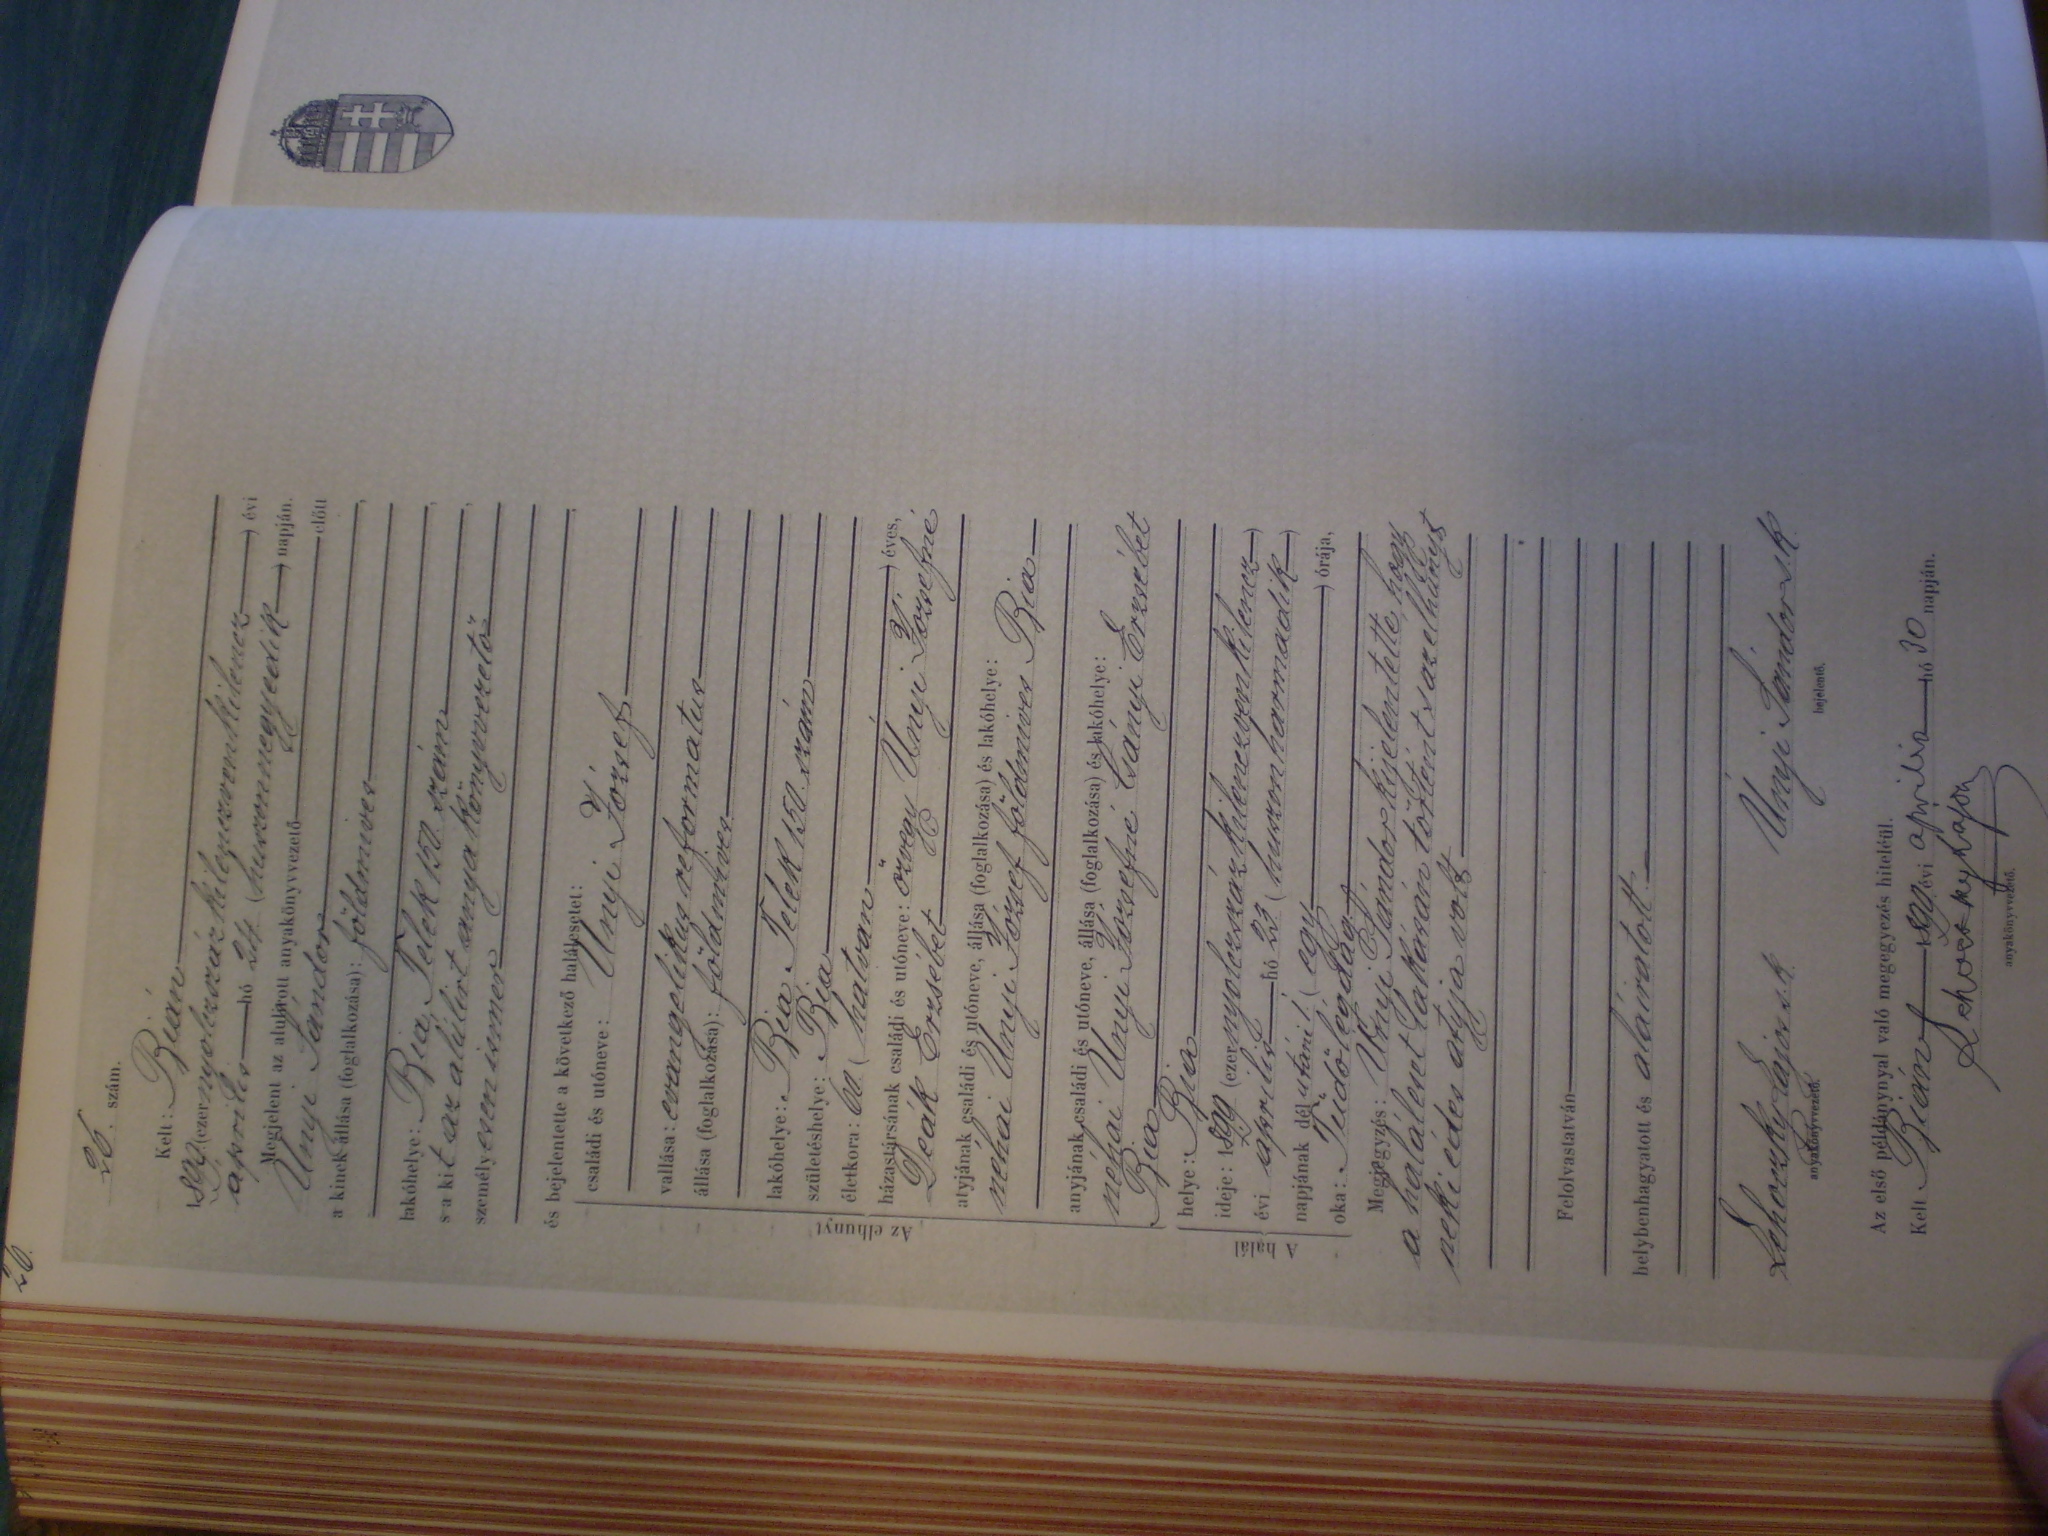 26.
26. szám.
Kelt: Bián
1899 (ezernyolczszázkilenczvenkilencz) évi
április hó 24 (huszonnegyedik) napján.
Megjelent az alulírott anyakönyvvezető előtt
Unyi Sándor
a kinek állása (foglalkozása): földmives,
lakóhelye: Bia, Telek 150. szám,
s a kit az alólirt anyakönyvvezető,
személyesen ismer
és bejelentette a következő halálesetet:
Az elhunyt
családi és utóneve: Unyi József
vallása: evangelikus reformatus
állása (foglalkozása): földmives
lakóhelye: Bia Telek 150. szám
születéshelye: Bia
életkora: 60 (hatvan) éves,
házastársának családi és utóneve: özvegy Unyi Józsefné
Deák Erzsébet
atyjának családi és utóneve, állása (foglalkozása) és lakóhelye:
néhai Unyi József földmives Bia
anyjának családi és utóneve, állása (foglalkozása) és lakóhelye:
néhai Unyi Józsefné Csányi Erzsébet
Bia
A halál
helye: Bia
ideje: 1899 (ezernyolczszázkilenczvenkilencz)
évi április hó 23 (huszonharmadik)
napjának dél utáni 1 (egy) órája,
oka: Tüdőlégdag
Megjegyzés: Unyi Sándor kijelentette, hogy
a haláleset lakásán történt s az elhunyt
neki édes atyja volt
Felolvastatván
helybenhagyatott és aláíratott.
Lehoczky Lajos s.k. Unyi Sándor s.k.
anyakönyvvezető. bejelentő.
Az első példánynyal való megegyezés hiteléül.
Kelt Bián 1899 évi április hó 30 napján.
Lehoczky Lajos
anyakönyvvezető.